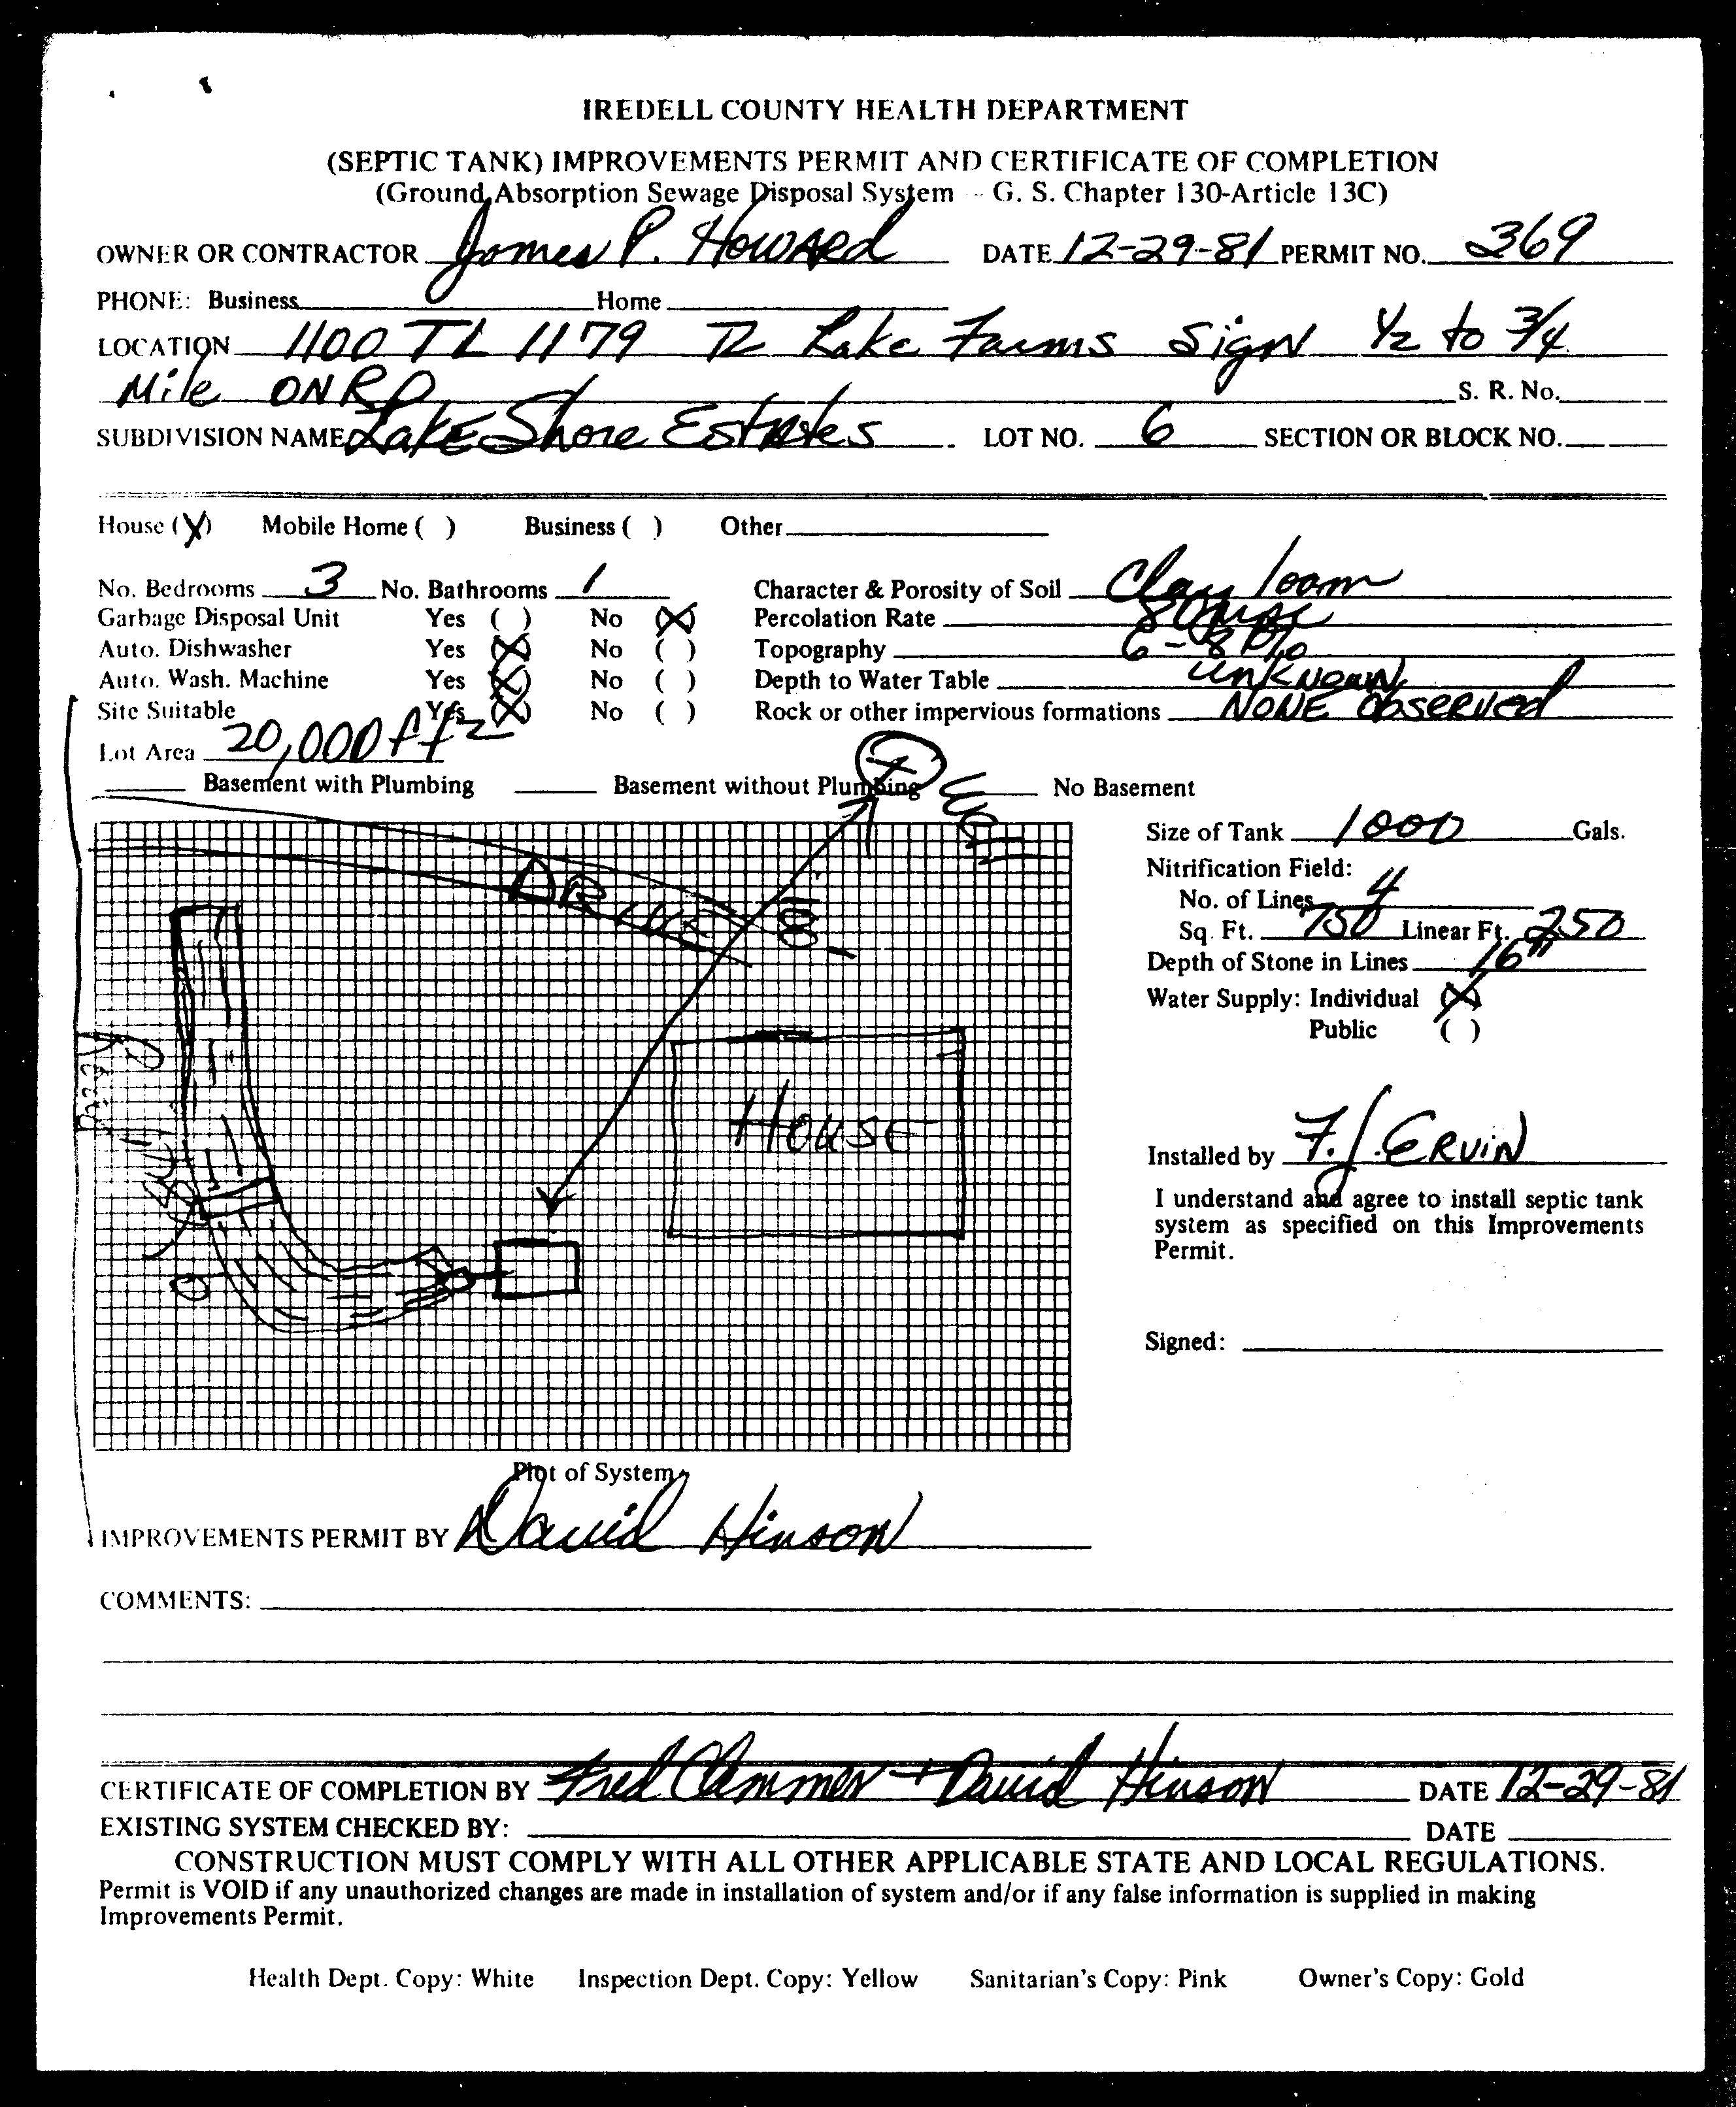 IREDELL COUNTY HEALTH DEPARTMENT
(SEPTIC TANK) IMPROVEMENTS PERMIT AND CERTIFICATE OF COMPLETION
(Ground Absorption Sewage Disposal System - G. S. Chapter 130-Article 13C)
OWNER OR CONTRACTOR James P. Howard DATE 12-29-81 PERMIT NO. 369
PHONE: Business Home
LOCATION 1100 TL 1179 TL Lake Farms Sign 1/2 to 3/4
Mile ON RD S. R. No.
SUBDIVISION NAME Lake Shore Estates LOT NO. 6 SECTION OR BLOCK NO.
House (X) Mobile Home ( ) Business ( ) Other
No. Bedrooms 3 No. Bathrooms 1 Character & Porosity of Soil Clay loam
Garbage Disposal Unit Yes ( ) No (X) Percolation Rate
Auto. Dishwasher Yes (X) No ( ) Topography 6-8 %
Auto. Wash. Machine Yes (X) No ( ) Depth to Water Table unknown
Site Suitable Yes (X) No ( ) Rock or other impervious formations NONE Observed
Lot Area 20,000 ft2
Basement with Plumbing Basement without Plumbing No Basement
Well
Size of Tank 1000 Gals.
Nitrification Field:
No. of Lines 4
Sq. Ft. 750 Linear Ft. 250
Depth of Stone in Lines 16"
Water Supply: Individual (X)
Public ( )
DRIVE
House
Installed by F. J. ERVIN
I understand and agree to install septic tank
system as specified on this Improvements
Permit.
Signed:
Plot of System
IMPROVEMENTS PERMIT BY David Hinson
COMMENTS:
CERTIFICATE OF COMPLETION BY Fred Clammer + David Hinson DATE 12-29-81
EXISTING SYSTEM CHECKED BY: DATE
CONSTRUCTION MUST COMPLY WITH ALL OTHER APPLICABLE STATE AND LOCAL REGULATIONS.
Permit is VOID if any unauthorized changes are made in installation of system and/or if any false information is supplied in making
Improvements Permit.
Health Dept. Copy: White Inspection Dept. Copy: Yellow Sanitarian's Copy: Pink Owner's Copy: Gold